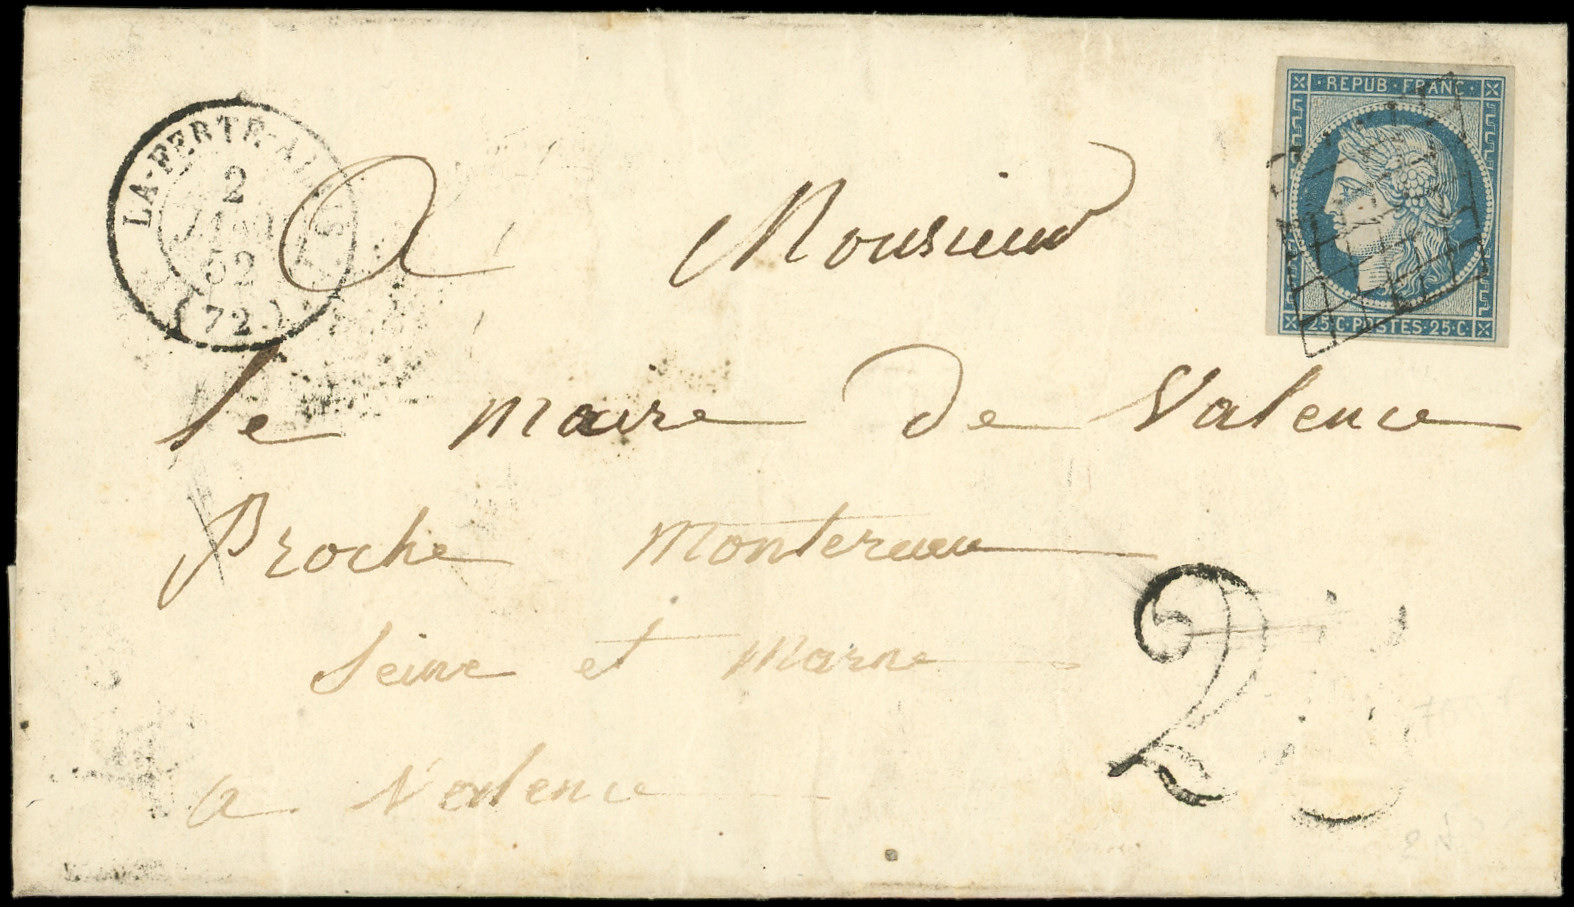 LA-FERTE-A
2
JANV
52
(72)
REPUB·FRANC
25·C·POSTES·25·C·
A Monsieur
le maire de Valence
Proche Montereau
Seine et Marne
a Valence
2